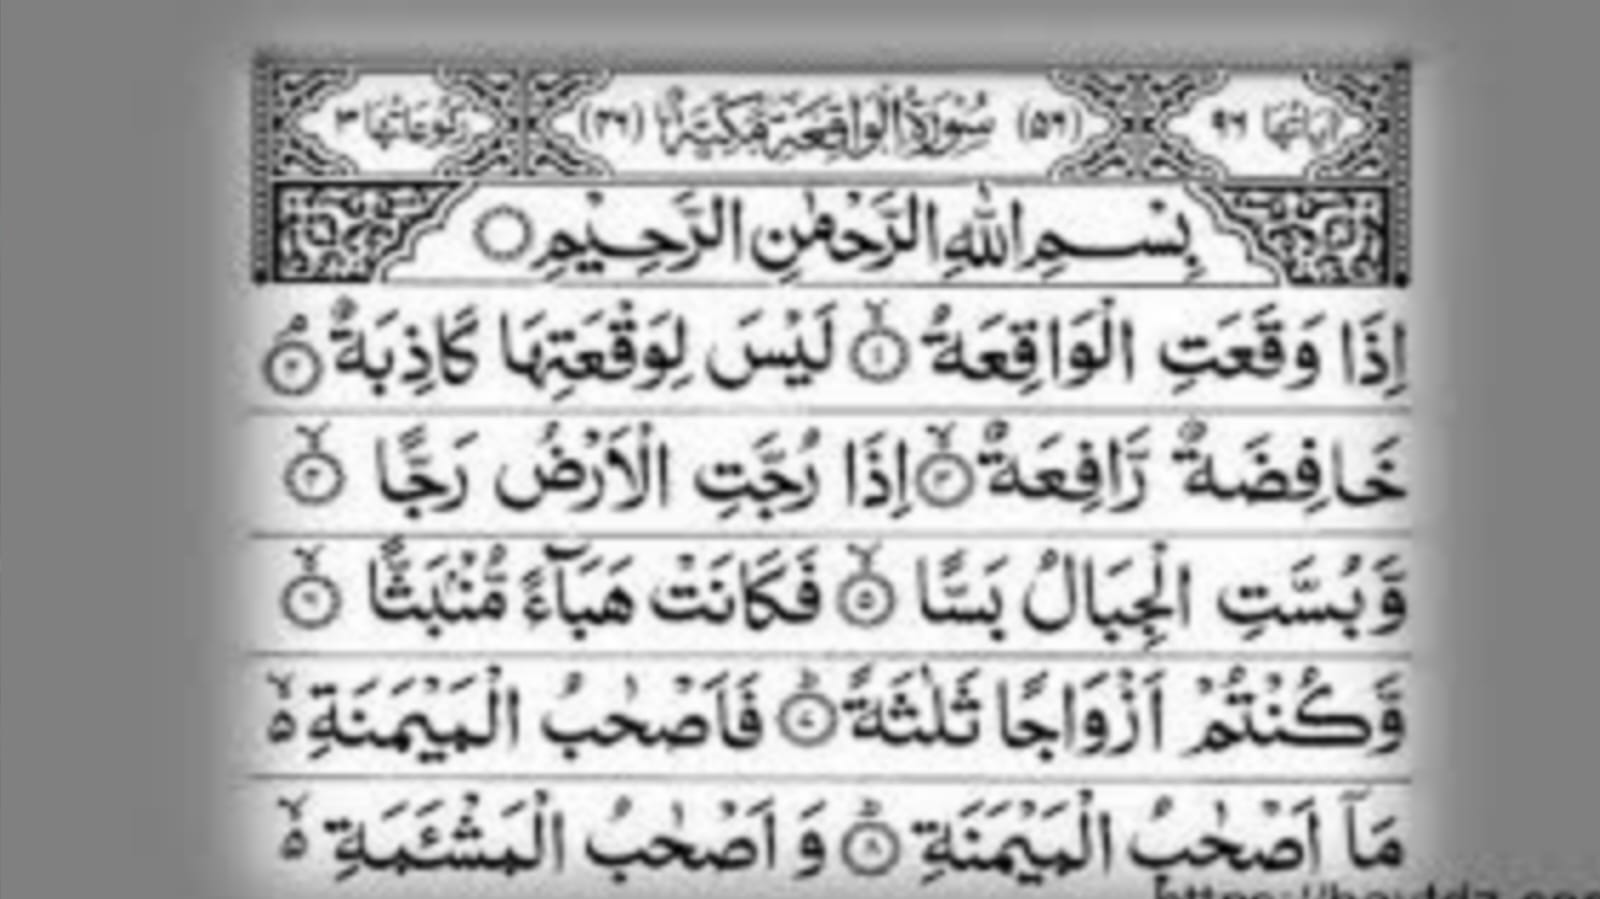 اٰیَاتُهَا ۹۶ (۵۶) سُوْرَةُ الْوَاقِعَةِ مَكِّيَّةٌ (۴۶) رُكُوْعَاتُهَا ۳
بِسْمِ اللّٰهِ الرَّحْمٰنِ الرَّحِيْمِ
اِذَا وَقَعَتِ الْوَاقِعَةُ ۙ۝۱ لَيْسَ لِوَقْعَتِهَا كَاذِبَةٌ ۘ۝۲
خَافِضَةٌ رَّافِعَةٌ ۙ۝۳ اِذَا رُجَّتِ الْاَرْضُ رَجًّا ۙ۝۴
وَّبُسَّتِ الْجِبَالُ بَسًّا ۙ۝۵ فَكَانَتْ هَبَآءً مُّنْۢبَثًّا ۙ۝۶
وَّكُنْتُمْ اَزْوَاجًا ثَلٰثَةً ؕ۝۷ فَاَصْحٰبُ الْمَيْمَنَةِ ۙ۬
مَآ اَصْحٰبُ الْمَيْمَنَةِ ؕ۝۸ وَ اَصْحٰبُ الْمَشْـَٔمَةِ ۙ۬